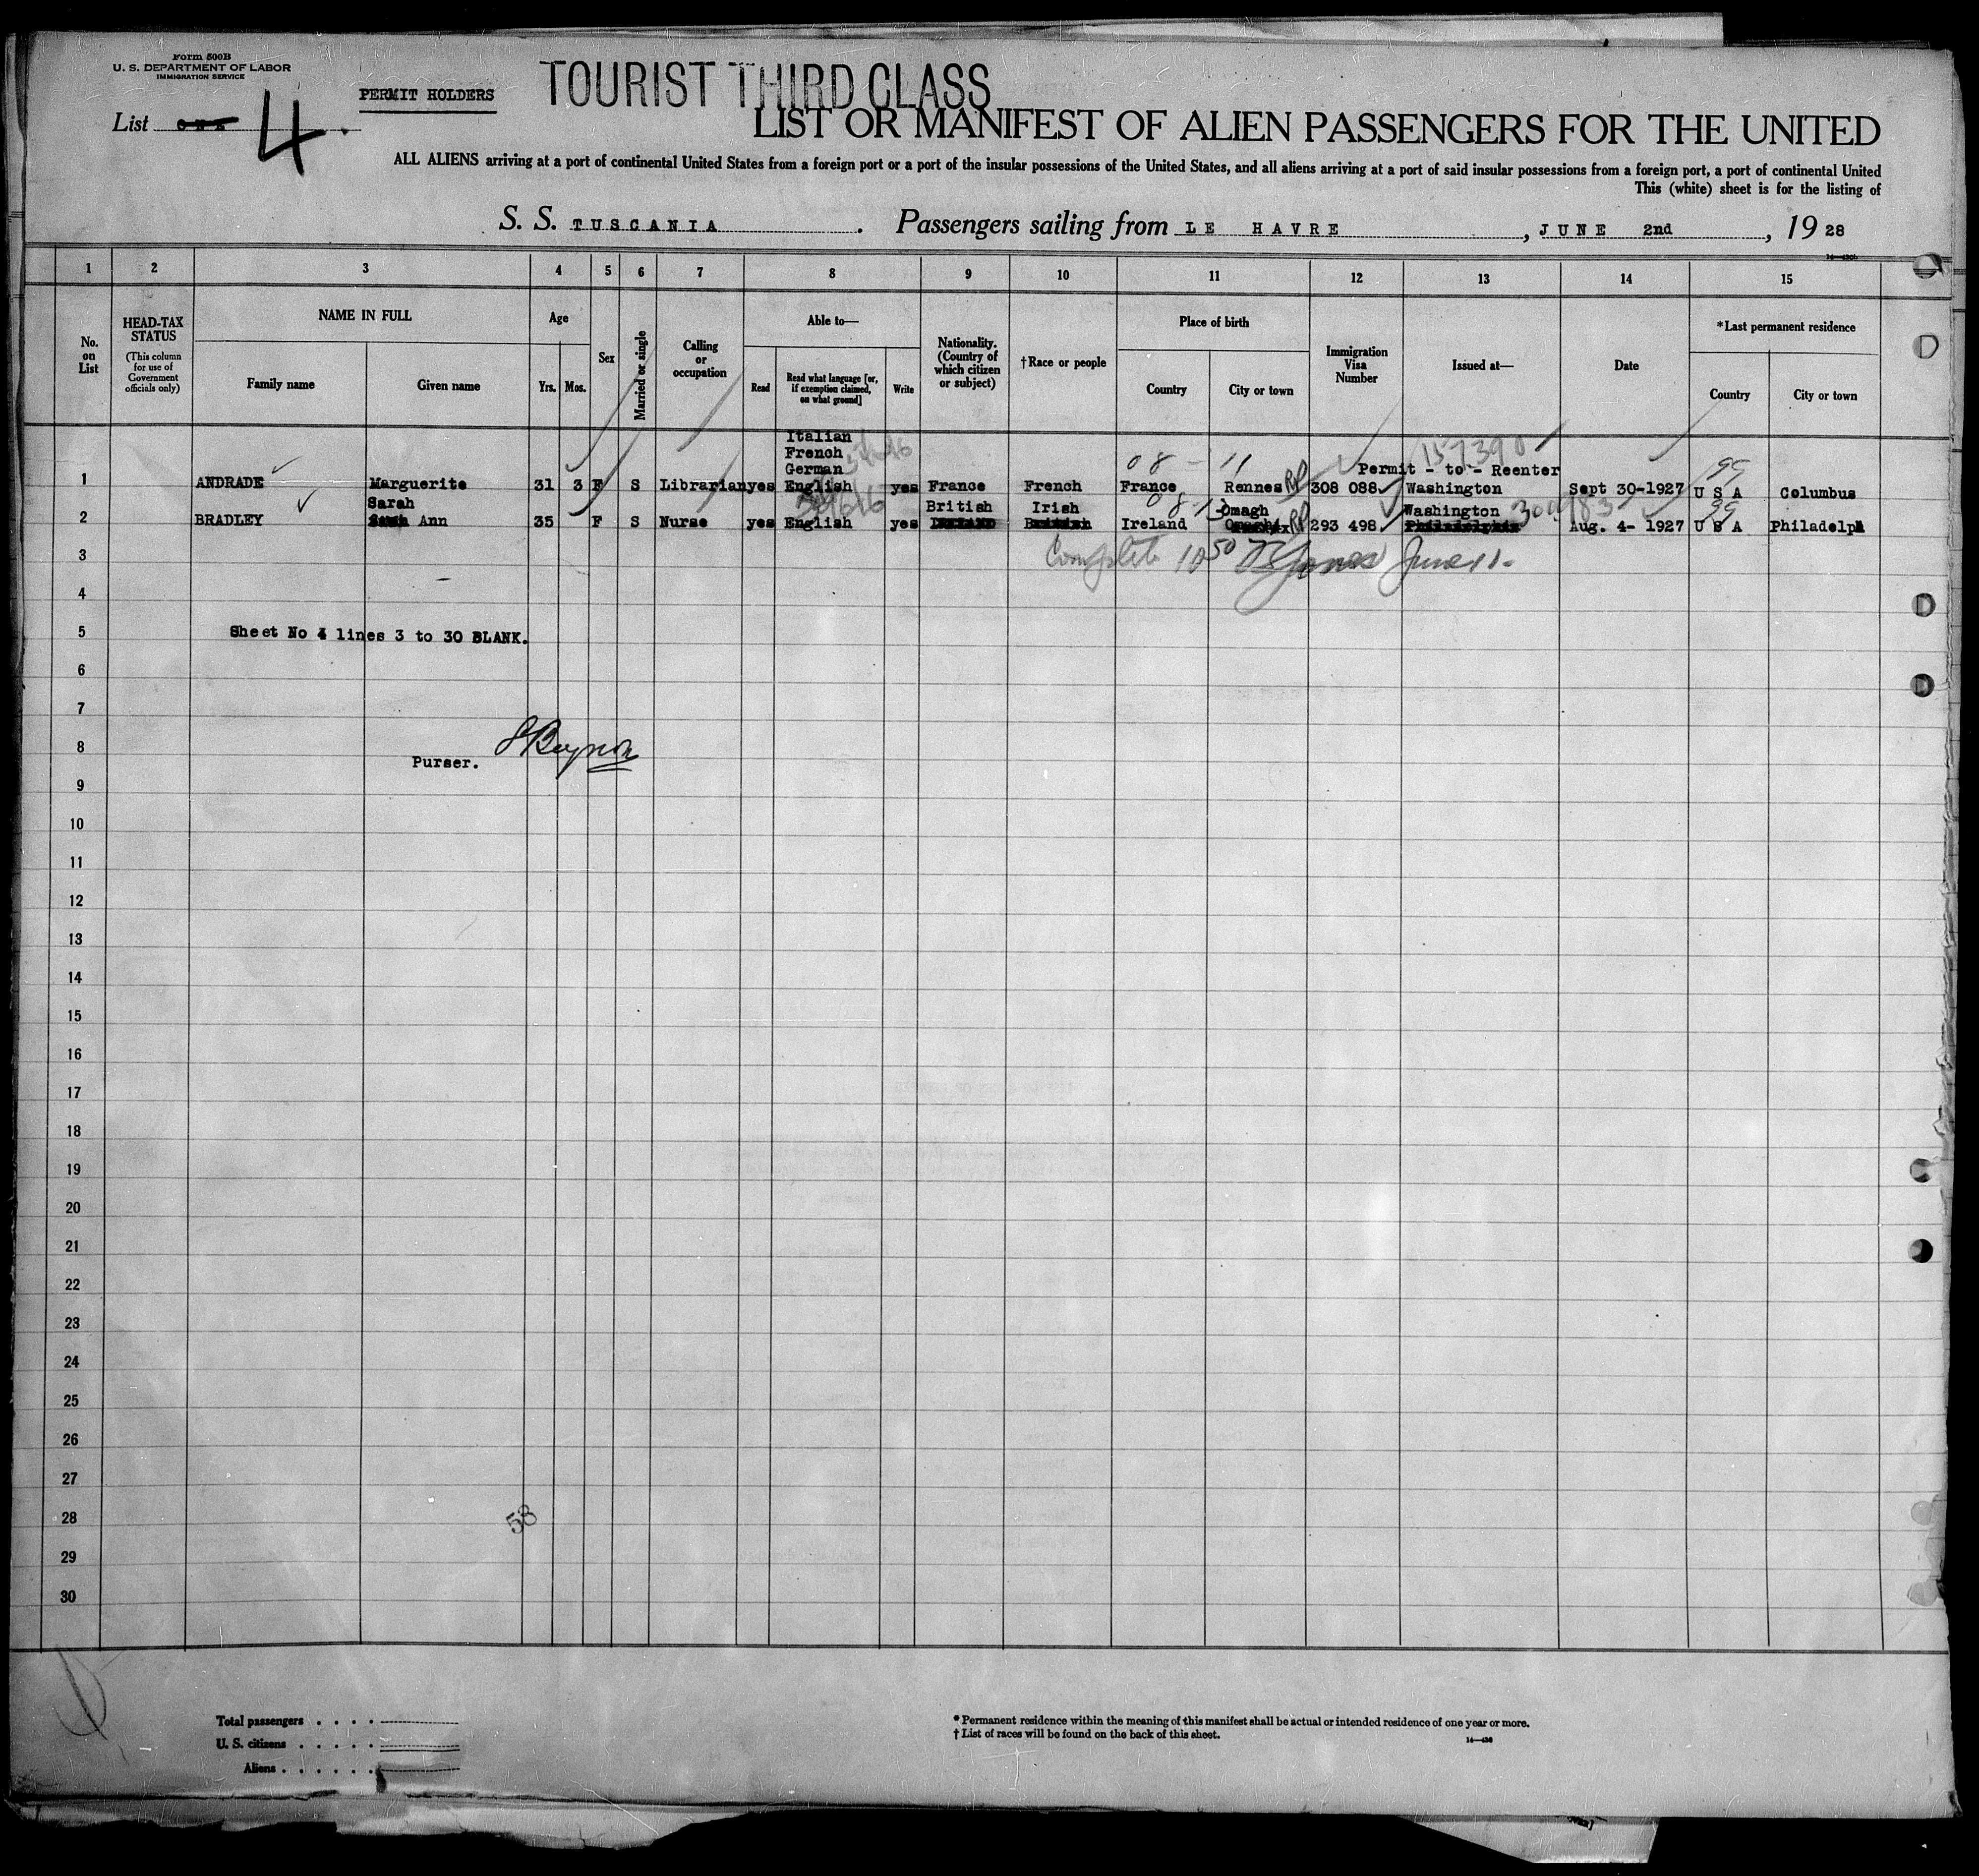 Form 500B
U. S. DEPARTMENT OF LABOR
IMMIGRATION SERVICE
PERMIT HOLDERS
TOURIST THIRD CLASS
List 4.
LIST OR MANIFEST OF ALIEN PASSENGERS FOR THE UNITED
ALL ALIENS arriving at a port of continental United States from a foreign port or a port of the insular possessions of the United States, and all aliens arriving at a port of said insular possessions from a foreign port, a port of continental United
This (white) sheet is for the listing of
S. S. TUSCANIA . Passengers sailing from LE HAVRE , JUNE 2nd , 19 28
1 2 3 4 5 6 7 8 9 10 11 12 13 14 15
No. on List
HEAD-TAX STATUS
(This column for use of Government officials only)
NAME IN FULL
Family name
Given name
Age
Yrs.
Mos.
Sex
Married or single
Calling or occupation
Able to—
Read
Read what language [or, if exemption claimed, on what ground]
Write
Nationality. (Country of which citizen or subject)
†Race or people
Place of birth
Country
City or town
Immigration Visa Number
Issued at—
Date
*Last permanent residence
Country
City or town
Italian
French
German
157390
08 - 11
99
Permit - to - Reenter
1 ANDRADE Marguerite 31 3 F S Librarian yes English yes France French France Rennes RP 308 088 Washington Sept 30-1927 U S A Columbus
Sarah British Irish 08-13 Omagh Washington 99
2 BRADLEY Ann 35 F S Nurse yes English yes Ireland RP 293 498 Aug. 4- 1927 U S A Philadelph
3 Complete 10 50 Jones June 11.
4
5 Sheet No 4 lines 3 to 30 BLANK.
6
7
8
Purser.
9
10
11
12
13
14
15
16
17
18
19
20
21
22
23
24
25
26
27
28
58
29
30
Total passengers . . . .
U. S. citizens . . . . .
Aliens . . . . . .
* Permanent residence within the meaning of this manifest shall be actual or intended residence of one year or more.
† List of races will be found on the back of this sheet.